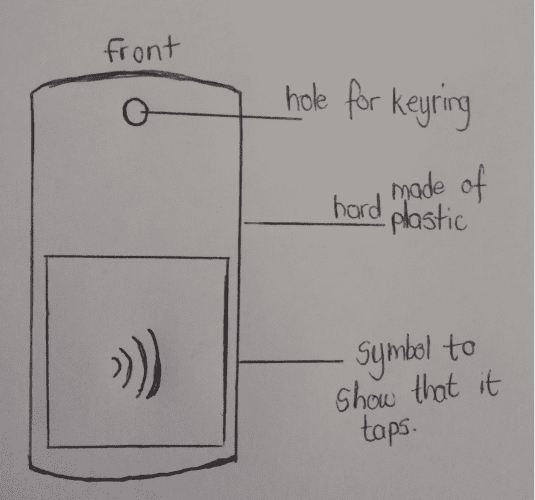 front
hole for keyring
hard made of
plastic
symbol to
show that it
taps.